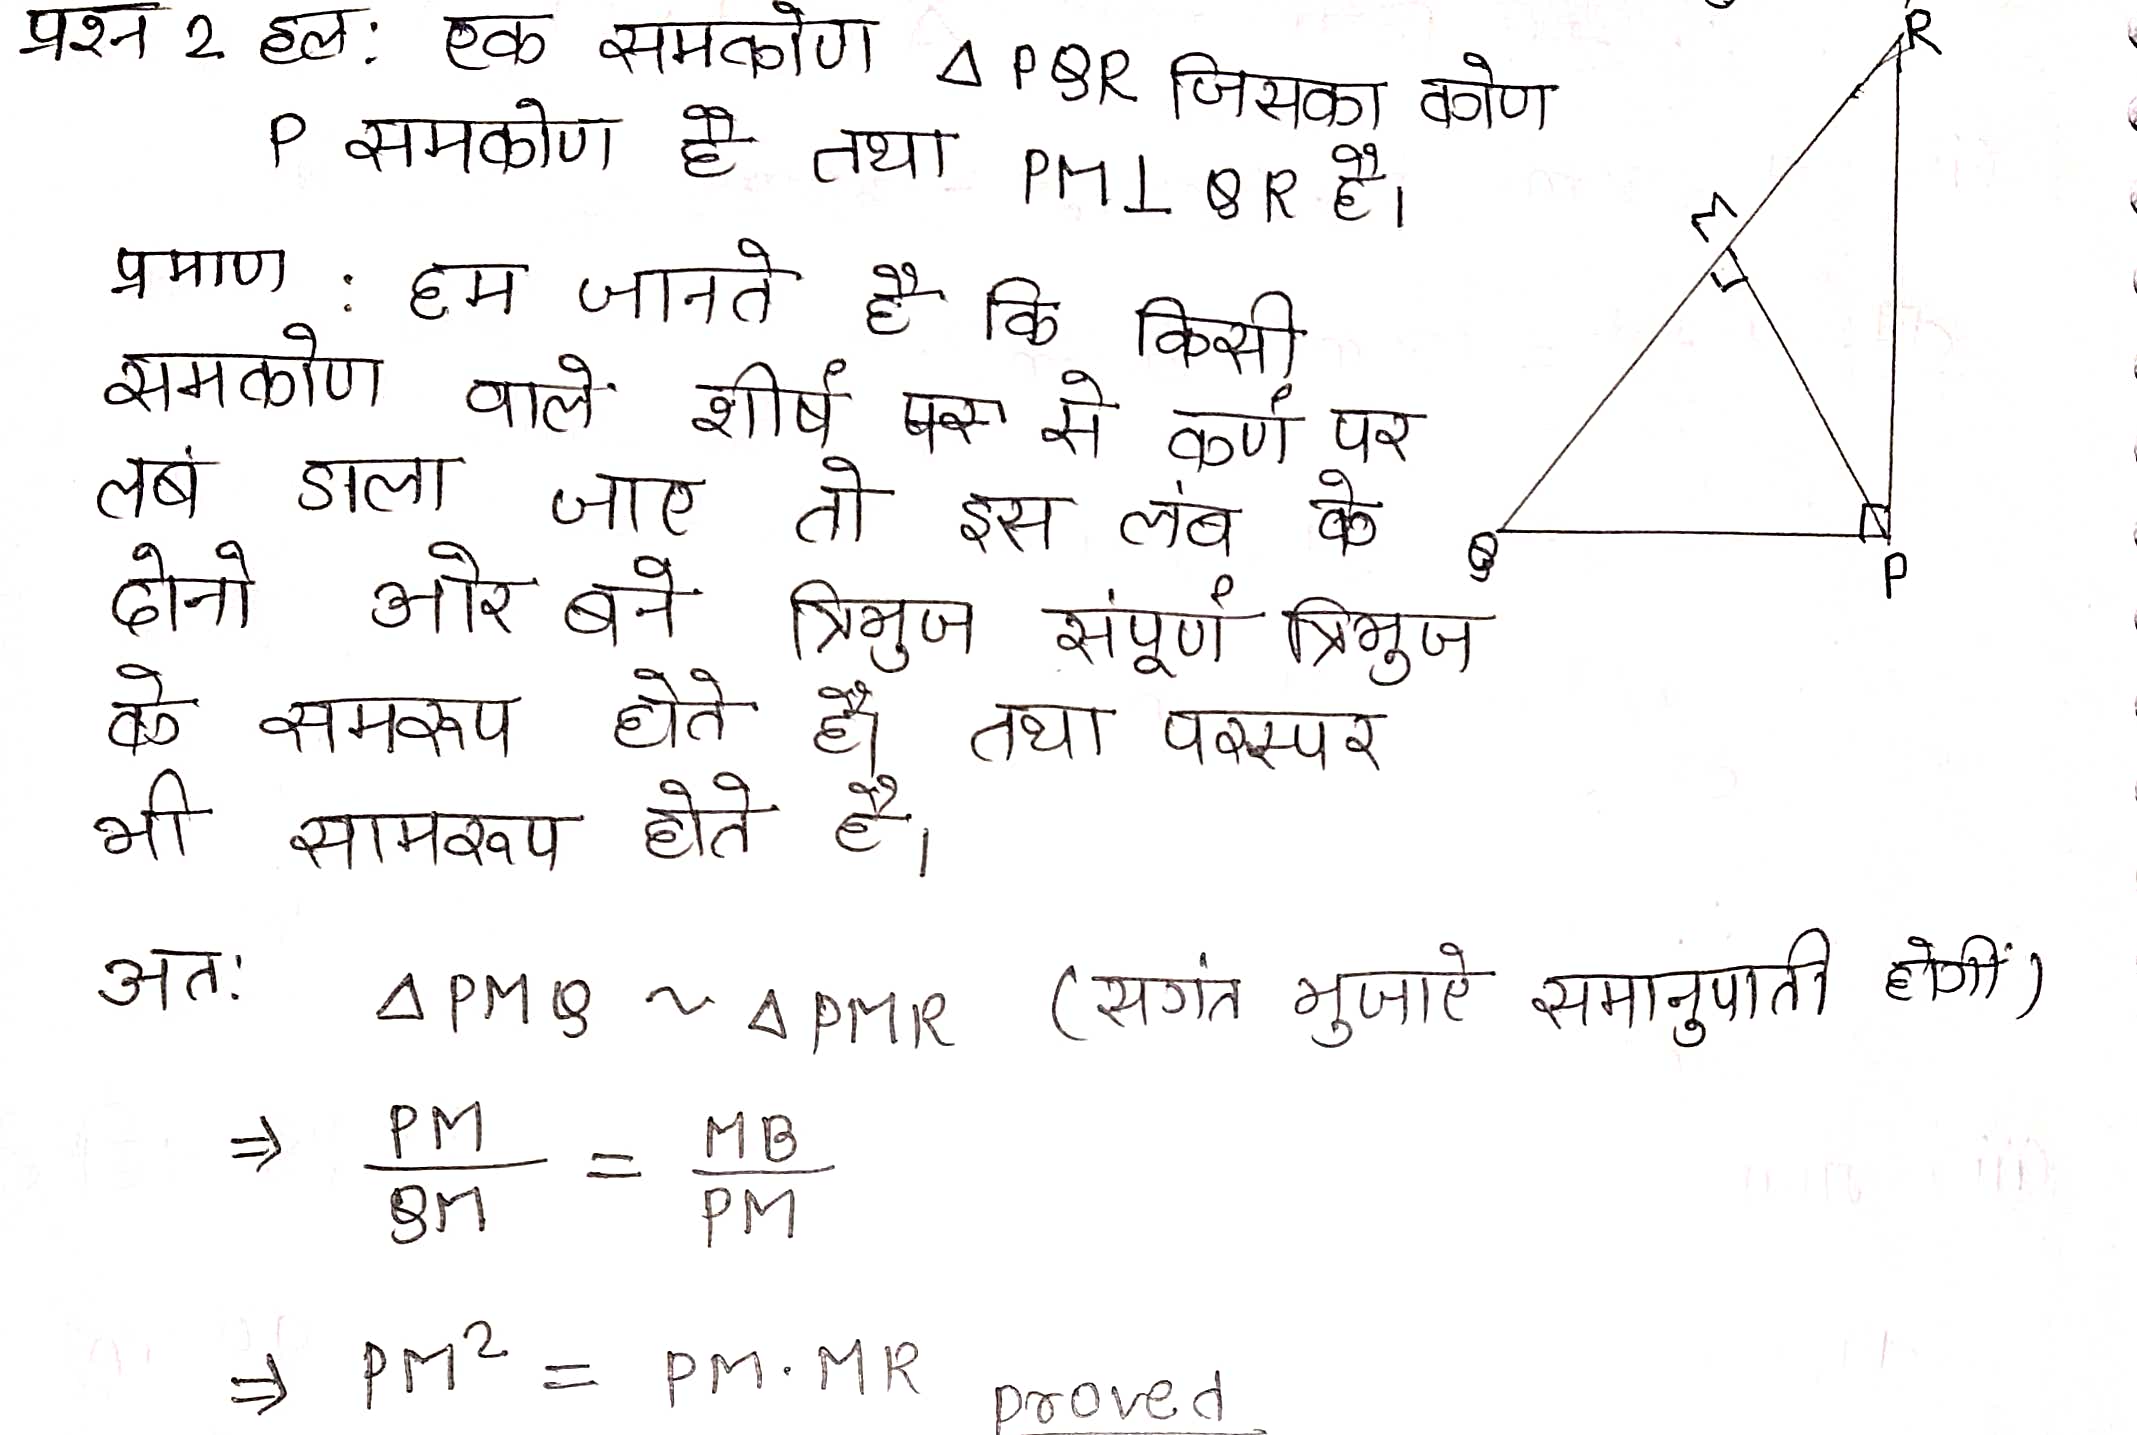 प्रश्न 2 हल: एक समकोण Δ PQR जिसका कोण
P समकोण है तथा PM⊥ QR है।
प्रमाण : हम जानते है कि किसी
समकोण वाले शीर्ष से कर्ण पर
लबं डाला जाए तो इस लंब के
दोनो ओर बने त्रिभुज संपूर्ण त्रिभुज
के समरूप होते है। तथा परस्पर
भी सामरूप होते है।
अत: Δ PMQ ~ Δ PMR (सगंत भुजाऐ समानुपाती होगीं)
⇒ PM/QM = MB/PM
⇒ PM² = PM.MR proved
R
M
Q
P